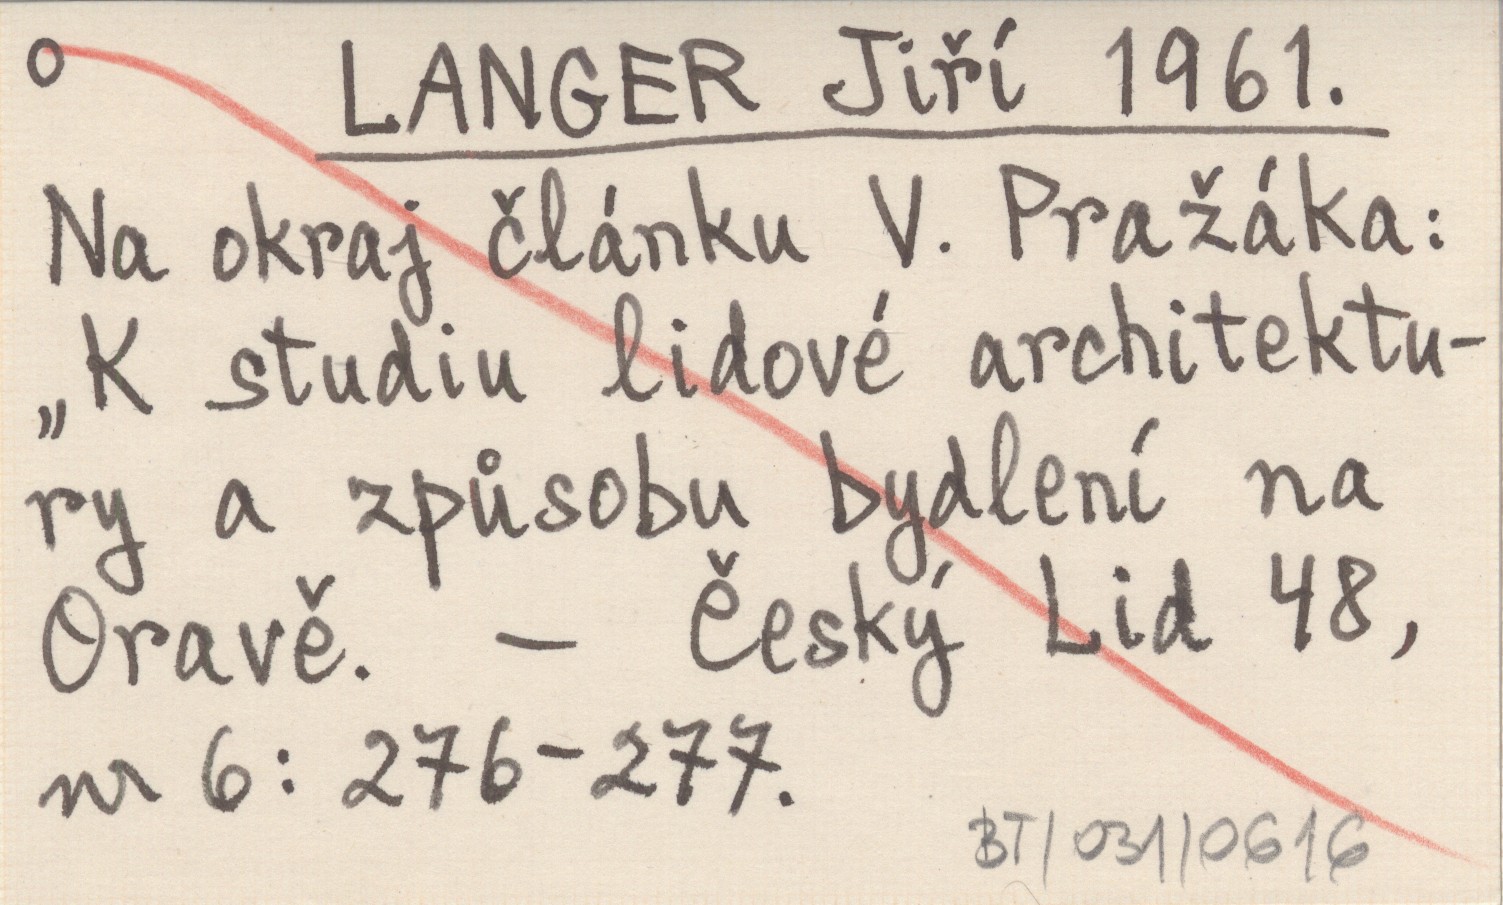 o LANGER Jiří 1961.
Na okraj článku V. Pražáka:
„K studiu lidové architektu-
ry a způsobu bydlení na
Oravě. – Český Lid 48,
nr 6: 276-277.
BT/031/0616